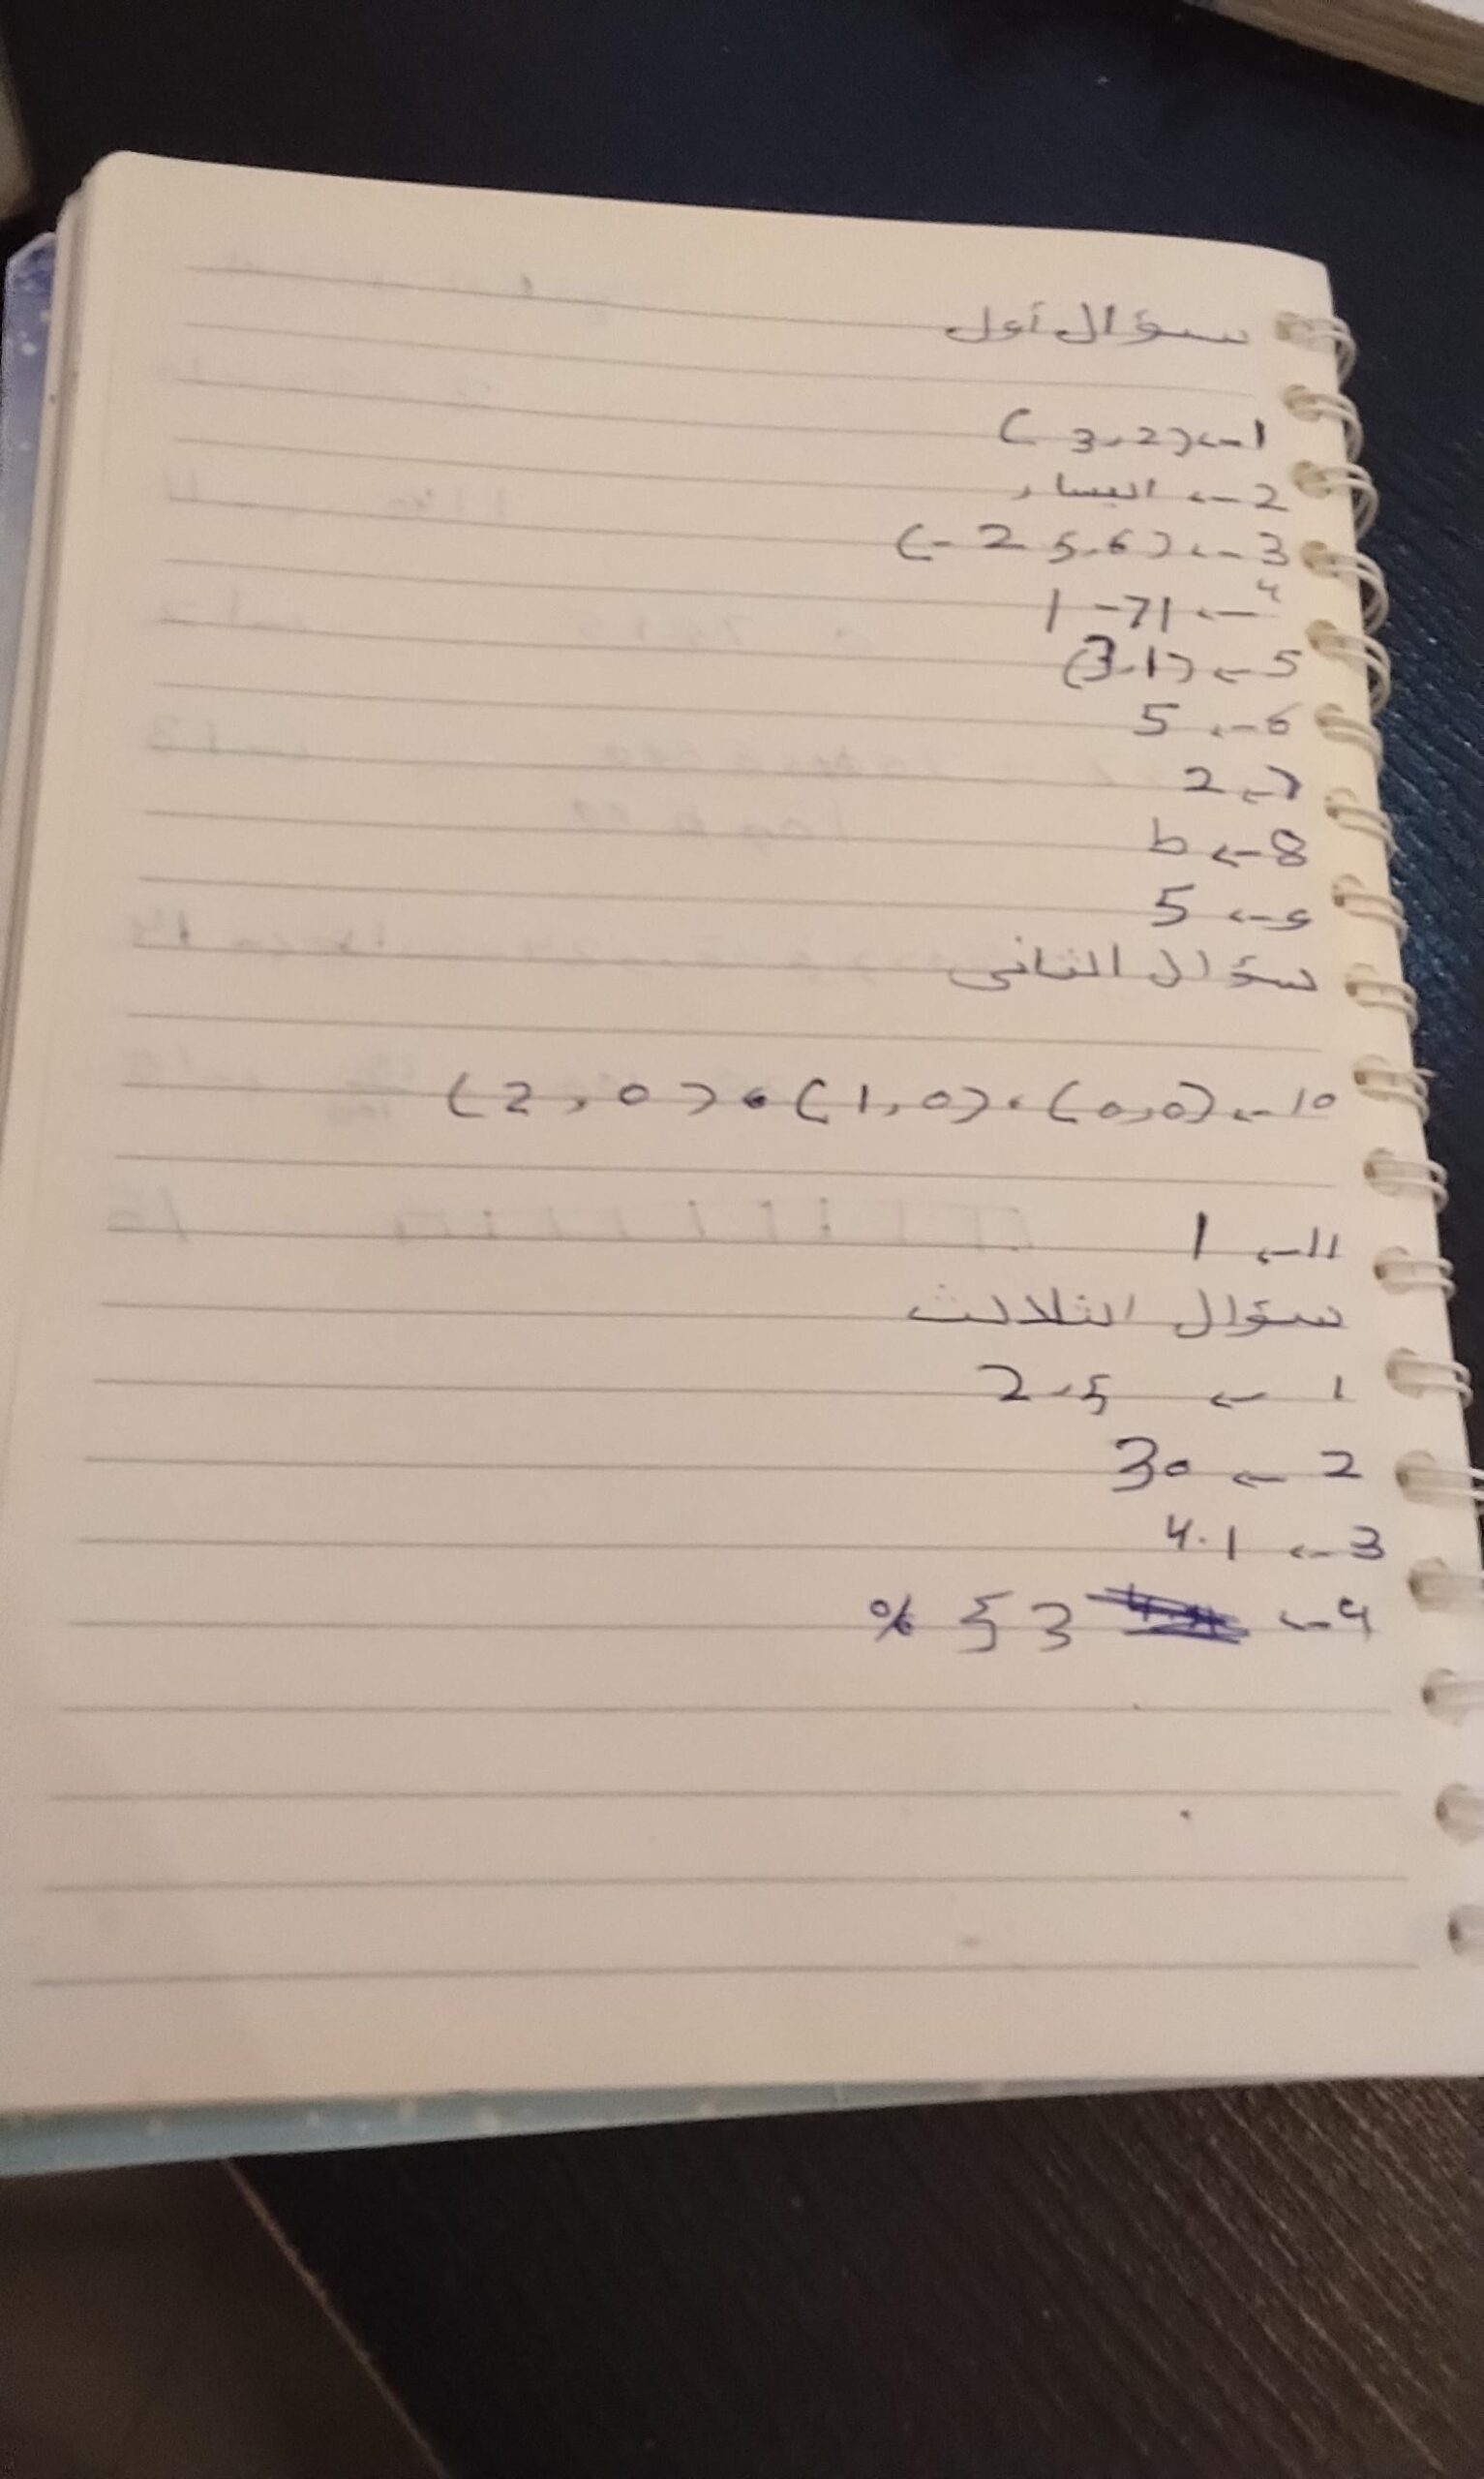 سؤال أول
1← (3,2)
2← اليسار
3← (-2 5,6)
4← |-7|
5← (3,1)
6← 5
7← 2
8← b
9← 5
سؤال الثاني
10← (0,0)، (1,0)، (2,0)
11← 1
سؤال الثلالث
1 ← 2,5
2 ← 30
3 ← 4.1
4← 3 5 %